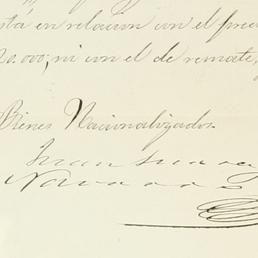 sta en relacion con el prec
20.000; ni con el de remate,
Bienes Nacionalizados.
Navarro